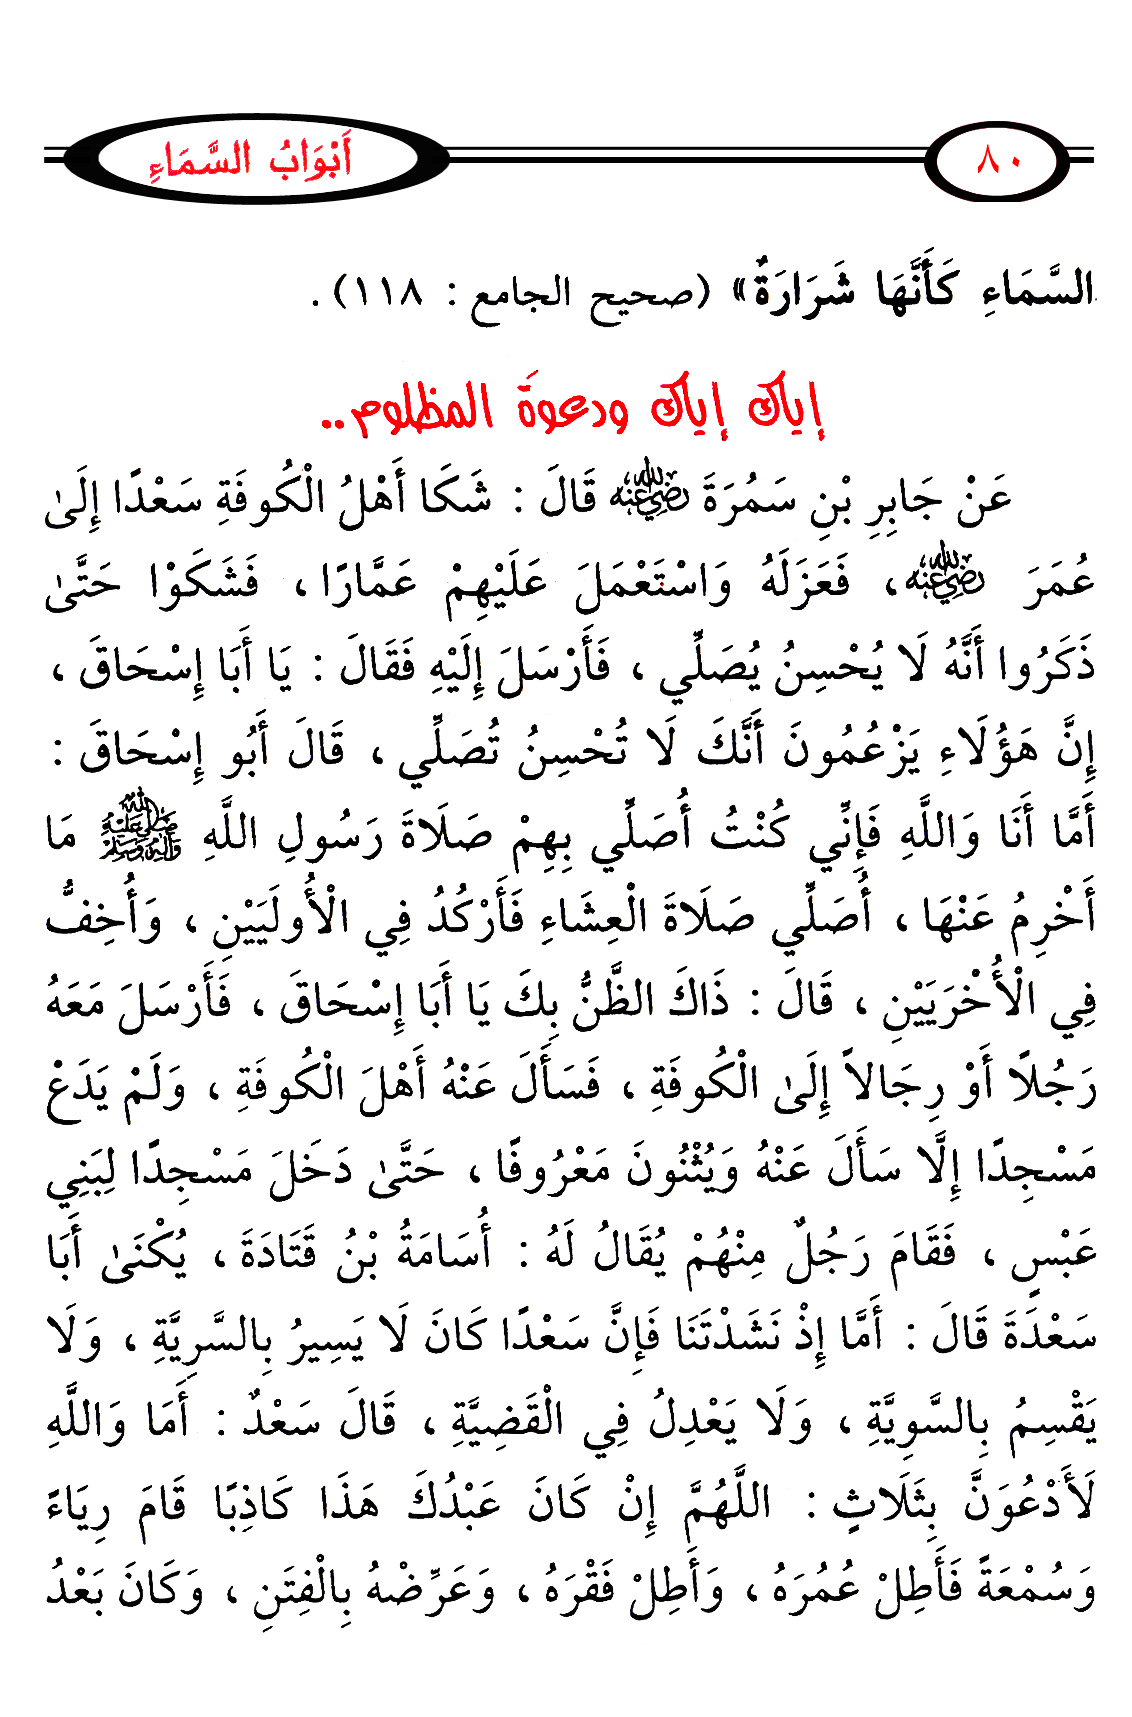 ٨٠
أَبْوَابُ السَّمَاءِ
السَّمَاءِ كَأَنَّهَا شَرَارَةٌ» (صحيح الجامع : ١١٨).
إياك إياك ودعوةَ المظلوم..
عَنْ جَابِرِ بْنِ سَمُرَةَ رضي الله عنه قَالَ : شَكَا أَهْلُ الْكُوفَةِ سَعْدًا إِلَىٰ
عُمَرَ رضي الله عنه ، فَعَزَلَهُ وَاسْتَعْمَلَ عَلَيْهِمْ عَمَّارًا ، فَشَكَوْا حَتَّىٰ
ذَكَرُوا أَنَّهُ لَا يُحْسِنُ يُصَلِّي ، فَأَرْسَلَ إِلَيْهِ فَقَالَ : يَا أَبَا إِسْحَاقَ ،
إِنَّ هَؤُلَاءِ يَزْعُمُونَ أَنَّكَ لَا تُحْسِنُ تُصَلِّي ، قَالَ أَبُو إِسْحَاقَ :
أَمَّا أَنَا وَاللَّهِ فَإِنِّي كُنْتُ أُصَلِّي بِهِمْ صَلَاةَ رَسُولِ اللَّهِ صلى الله عليه وآله وسلم مَا
أَخْرِمُ عَنْهَا ، أُصَلِّي صَلَاةَ الْعِشَاءِ فَأَرْكُدُ فِي الْأُولَيَيْنِ ، وَأُخِفُّ
فِي الْأُخْرَيَيْنِ ، قَالَ : ذَاكَ الظَّنُّ بِكَ يَا أَبَا إِسْحَاقَ ، فَأَرْسَلَ مَعَهُ
رَجُلًا أَوْ رِجَالاً إِلَىٰ الْكُوفَةِ ، فَسَأَلَ عَنْهُ أَهْلَ الْكُوفَةِ ، وَلَمْ يَدَعْ
مَسْجِدًا إِلَّا سَأَلَ عَنْهُ وَيُثْنُونَ مَعْرُوفًا ، حَتَّىٰ دَخَلَ مَسْجِدًا لِبَنِي
عَبْسٍ ، فَقَامَ رَجُلٌ مِنْهُمْ يُقَالُ لَهُ : أُسَامَةُ بْنُ قَتَادَةَ ، يُكْنَىٰ أَبَا
سَعْدَةَ قَالَ : أَمَّا إِذْ نَشَدْتَنَا فَإِنَّ سَعْدًا كَانَ لَا يَسِيرُ بِالسَّرِيَّةِ ، وَلَا
يَقْسِمُ بِالسَّوِيَّةِ ، وَلَا يَعْدِلُ فِي الْقَضِيَّةِ ، قَالَ سَعْدٌ : أَمَا وَاللَّهِ
لَأَدْعُوَنَّ بِثَلَاثٍ : اللَّهُمَّ إِنْ كَانَ عَبْدُكَ هَذَا كَاذِبًا قَامَ رِيَاءً
وَسُمْعَةً فَأَطِلْ عُمُرَهُ ، وَأَطِلْ فَقْرَهُ ، وَعَرِّضْهُ بِالْفِتَنِ ، وَكَانَ بَعْدُ